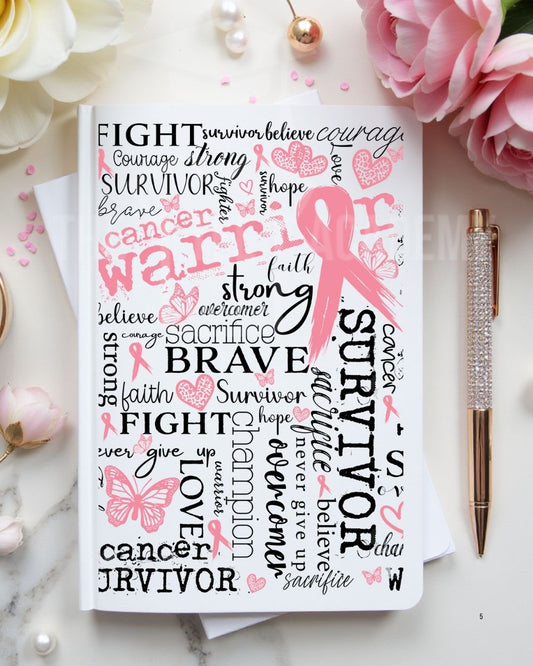 FIGHT survivor believe courag
Courage strong Love
SURVIVOR fighter survivor hope W
brave
cancer
warrior
faith
strong
believe overcomer
courage sacrifice
strong BRAVE
faith Survivor
FIGHT hope
sacrifice
SURVIVOR
cancer
ever give up
LOVE
warrior
champion
overcomer
never give up
believe
S
char
cancer
URVIVOR
sacrifice
W
5